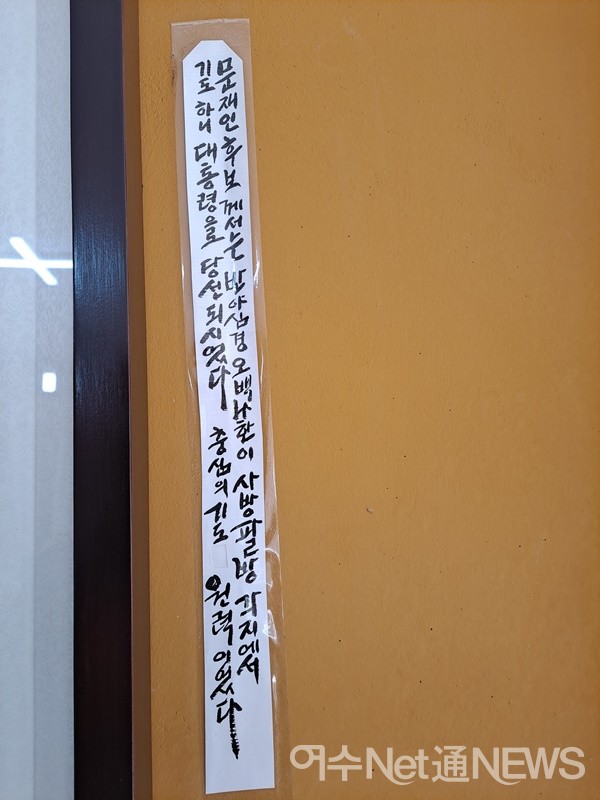 문재인 후보께서는 반야심경 오백나한이 사방팔방 각지에서
기도하니 대통령으로 당선되시었다 충심의기도 원력이었다
여수Net通NEWS